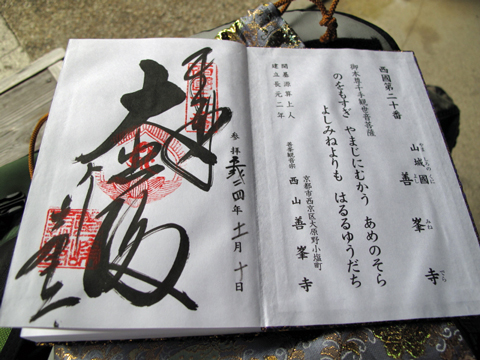 西國第二十番
山城國 善峯寺
やましろのくに よしみねでら
御本尊千手観世音菩薩
のをもすぎ やまじにむかう あめのそら
よしみねよりも はるるゆうだち
開基源算上人
建立長元二年
京都市西京区大原野小塩町
善峯観音宗 西山善峯寺
奉拝
大悲殿
参拝 平成二四年十一月十日